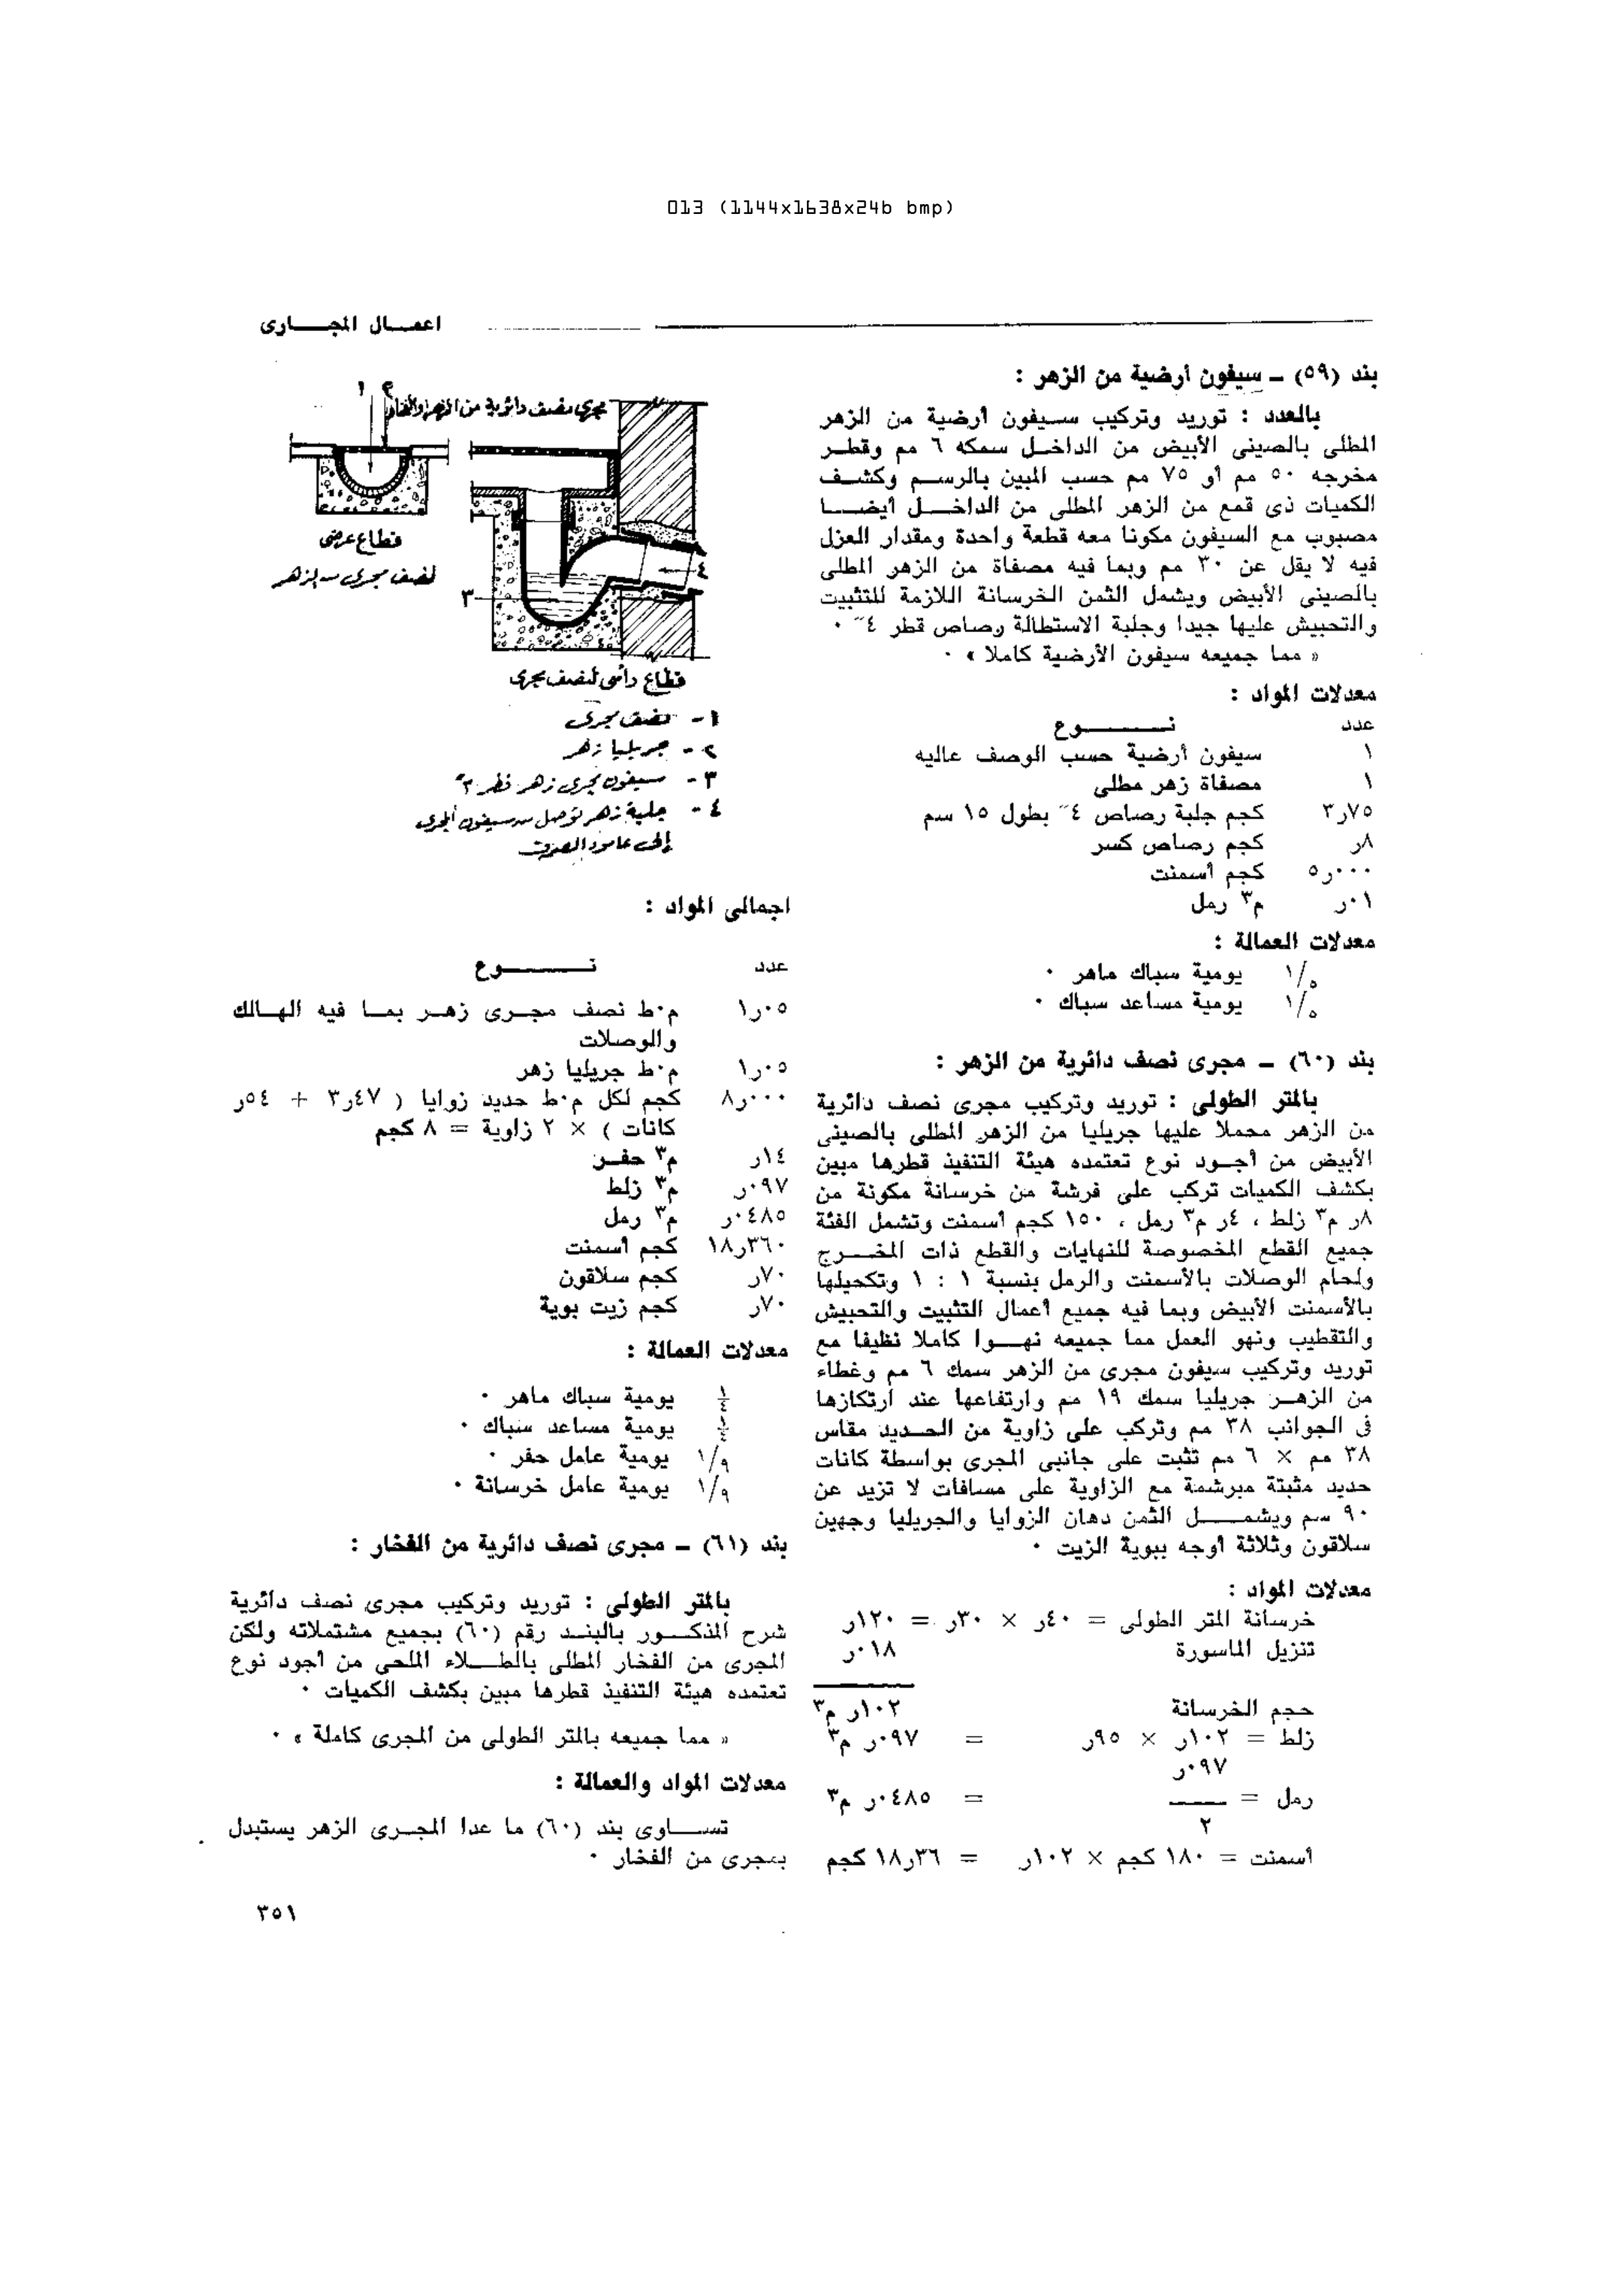 013 (1144x1638x24b bmp)
اعمـــال المجــــارى
بند (٥٩) – سيفون أرضية من الزهر :
بالعدد : توريد وتركيب سـيفون أرضية من الزهر
المطلى بالصينى الأبيض من الداخـل سمكه ٦ مم وقطـر
مخرجه ٥٠ مم أو ٧٥ مم حسب المبين بالرسـم وكشـف
الكميات ذى قمع من الزهر المطلى من الداخـــل أيضـــا
مصبوب مع السيفون مكونا معه قطعة واحدة ومقدار العزل
فيه لا يقل عن ٣٠ مم وبما فيه مصفاة من الزهر المطلى
بالصينى الأبيض ويشمل الثمن الخرسانة اللازمة للتثبيت
والتحبيش عليها جيدا وجلبة الاستطالة رصاص قطر ٤˝ ٠
« مما جميعه سيفون الأرضية كاملا » ٠
معدلات المواد :
عدد نـــــــوع
١ سيفون أرضية حسب الوصف عاليه
١ مصفاة زهر مطلى
٣٫٧٥ كجم جلبة رصاص ٤˝ بطول ١٥ سم
٨ر كجم رصاص كسر
٠٠٠ر٥ كجم أسمنت
٠١ر م٣ رمل
معدلات العمالة :
١/٥ يومية سباك ماهر ٠
١/٥ يومية مساعد سباك ٠
بند (٦٠) – مجرى نصف دائرية من الزهر :
بالمتر الطولى : توريد وتركيب مجرى نصف دائرية
من الزهر محملا عليها جريليا من الزهر المطلى بالصينى
الأبيض من أجـود نوع تعتمده هيئة التنفيذ قطرها مبين
بكشف الكميات تركب على فرشة من خرسانة مكونة من
٨ر م٣ زلط ، ٤ر م٣ رمل ، ١٥٠ كجم أسمنت وتشمل الفئة
جميع القطع المخصوصة للنهايات والقطع ذات المخـــرج
ولحام الوصلات بالأسمنت والرمل بنسبة ١ : ١ وتكحيلها
بالأسمنت الأبيض وبما فيه جميع أعمال التثبيت والتحبيش
والتقطيب ونهو العمل مما جميعه نهـــوا كاملا نظيفا مع
توريد وتركيب سيفون مجرى من الزهر سمك ٦ مم وغطاء
من الزهــر جريليا سمك ١٩ مم وارتفاعها عند ارتكازها
فى الجوانب ٣٨ مم وتركب على زاوية من الحـديد مقاس
٣٨ مم × ٦ مم تثبت على جانبى المجرى بواسطة كانات
حديد مثبتة مبرشمة مع الزاوية على مسافات لا تزيد عن
٩٠ سم ويشمـــــل الثمن دهان الزوايا والجريليا وجهين
سلاقون وثلاثة أوجه ببوية الزيت ٠
معدلات المواد :
خرسانة المتر الطولى = ٤٠ر × ٣٠ر = ١٢٠ر
تنزيل الماسورة ٠١٨ر
حجم الخرسانة ١٠٢ر م٣
زلط = ١٠٢ر × ٩٥ر = ٠٩٧ر م٣
٠٩٧ر
رمل = ـــــ = ٠٤٨٥ر م٣
٢
أسمنت = ١٨٠ كجم × ١٠٢ر = ٣٦ر١٨ كجم
مجرى نصف دائرية من الزهر والفخار
١ ٢
قطاع عرضى
لنصف مجرى من الزهر
٣
٤
قطاع رأسى لنصف مجرى
١ - نصف مجرى
٢ - جريليا زهر
٣ - سيفون مجرى زهر قطر ٣˝
٤ - جلبة زهر توصل من سيفون المجرى
إلى عامود الصرف
اجمالى المواد :
عدد نـــــــوع
٠٥ر١ م٠ط نصف مجـرى زهـر بمـا فيه الهـالك
والوصلات
٠٥ر١ م٠ط جريليا زهر
٠٠٠ر٨ كجم لكل م٠ط حديد زوايا ( ٤٧ر٣ + ٥٤ر
كانات ) × ٢ زاوية = ٨ كجم
١٤ر م٣ حفـر
٠٩٧ر م٣ زلط
٠٤٨٥ر م٣ رمل
٣٦٠ر١٨ كجم أسمنت
٧٠ر كجم سلاقون
٧٠ر كجم زيت بوية
معدلات العمالة :
١/٤ يومية سباك ماهر ٠
١/٤ يومية مساعد سباك ٠
١/٩ يومية عامل حفر ٠
١/٩ يومية عامل خرسانة ٠
بند (٦١) – مجرى نصف دائرية من الفخار :
بالمتر الطولى : توريد وتركيب مجرى نصف دائرية
شرح المذكـــور بالبنـد رقم (٦٠) بجميع مشتملاته ولكن
المجرى من الفخار المطلى بالطـــلاء الملحى من أجود نوع
تعتمده هيئة التنفيذ قطرها مبين بكشف الكميات ٠
« مما جميعه بالمتر الطولى من المجرى كاملة » ٠
معدلات المواد والعمالة :
تســـاوى بند (٦٠) ما عدا المجـرى الزهر يستبدل
بمجرى من الفخار ٠
٣٥١